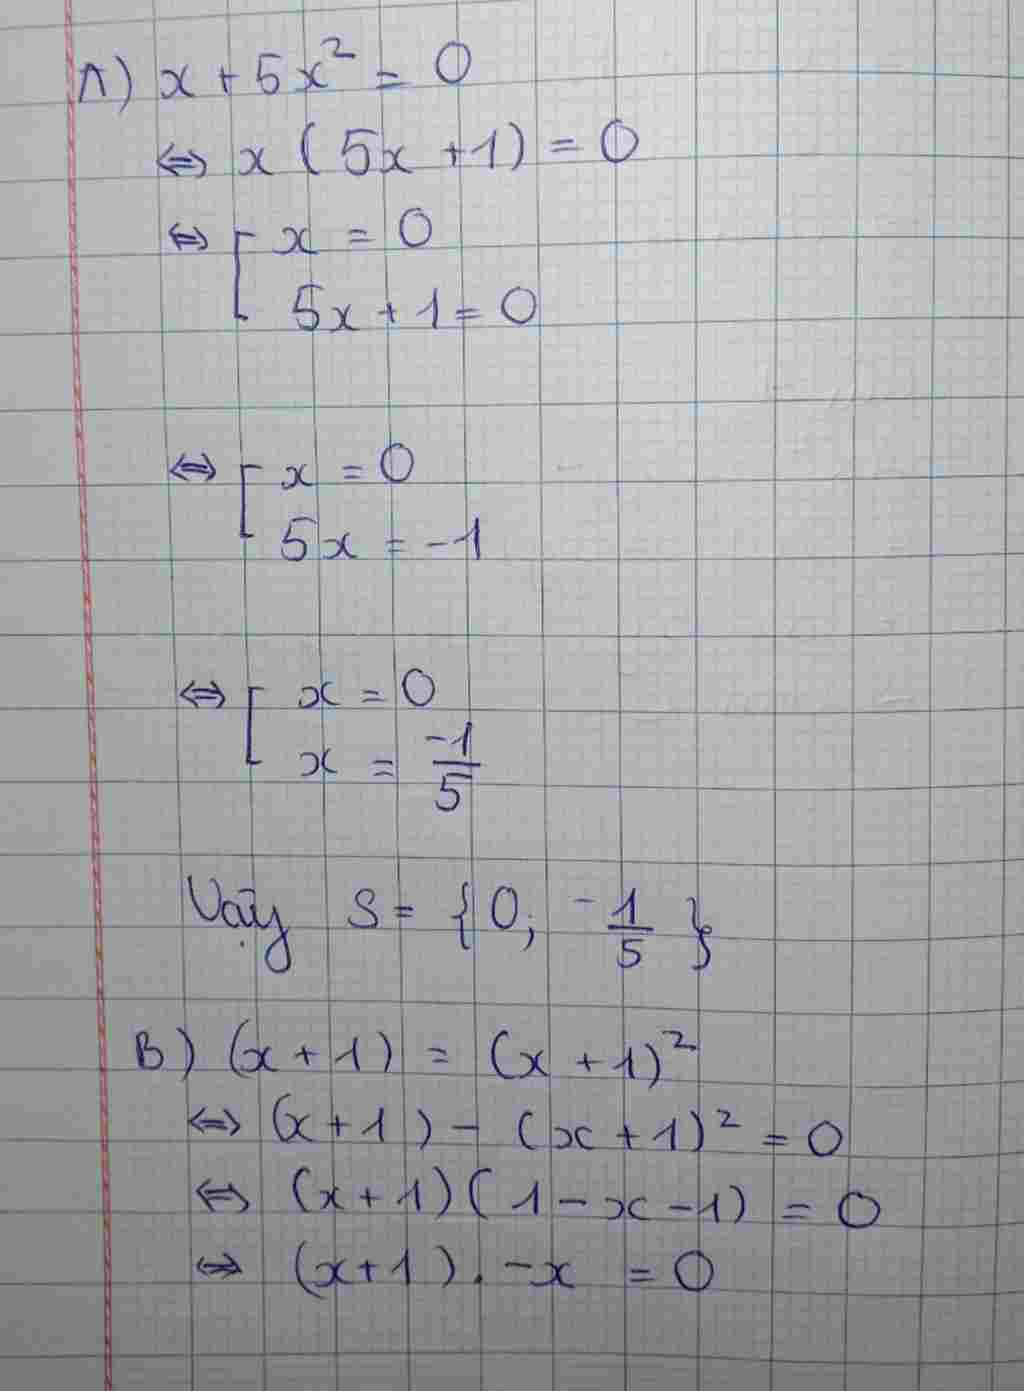 A) x + 5x² = 0
⇔ x ( 5x + 1 ) = 0
⇔ [ x = 0
5x + 1 = 0
⇔ [ x = 0
5x = -1
⇔ [ x = 0
x = -1/5
Vậy S = { 0; -1/5 }
B) (x + 1) = (x + 1)²
⇔ (x + 1) - (x + 1)² = 0
⇔ (x + 1)( 1 - x - 1) = 0
⇔ (x + 1) . -x = 0